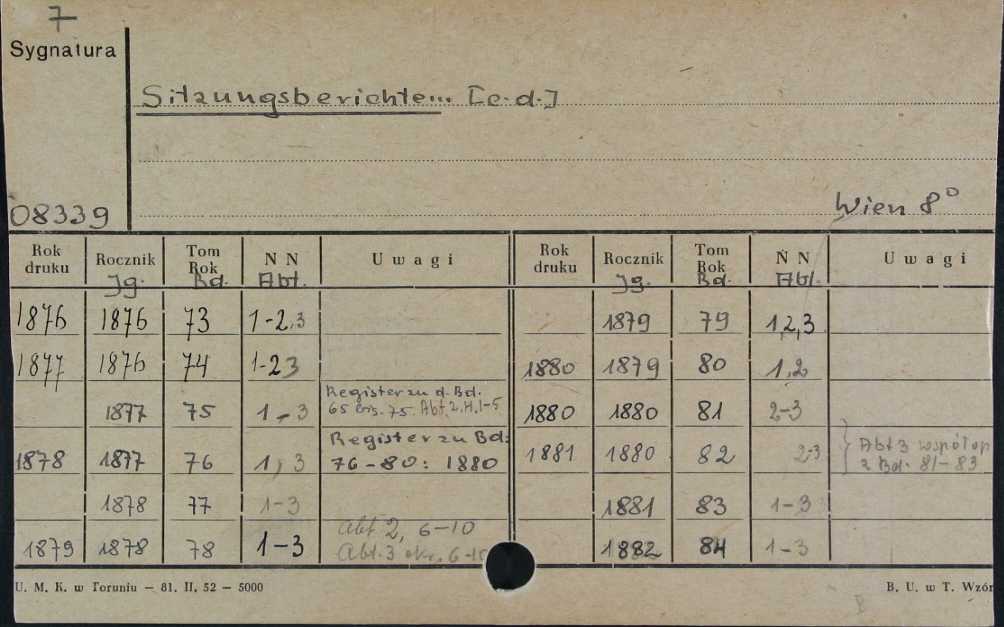 7
Sygnatura
Sitzungsberichte... [c.d.]
08339
Wien 8°
Rok druku Rocznik Tom Rok N N Uwagi Rok druku Rocznik Tom Rok N N Uwagi
Jg. Bd. Abt. Jg. Bd. Abt.
1876 1876 73 1-2,3 1879 79 1,2,3
1877 1876 74 1-23 1880 1879 80 1,2
1877 75 1-3 Register zu d. Bd. 65 bis. 75. Abt. 2. H. 1-5 1880 1880 81 2-3
1878 1877 76 1,3 Register zu Bd: 76-80: 1880 1881 1880 82 2-3 Abt 3 współop z Bd. 81-83
1878 77 1-3 1881 83 1-3
1879 1878 78 1-3 Abt 2, 6-10 Abt. 3 1882 84 1-3
U. M. K. w Toruniu — 81. II. 52 — 5000
B. U. w T. Wzór